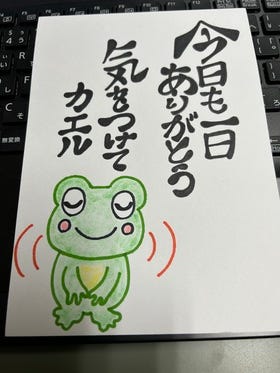 今日も一日
ありがとう
気をつけて
カエル